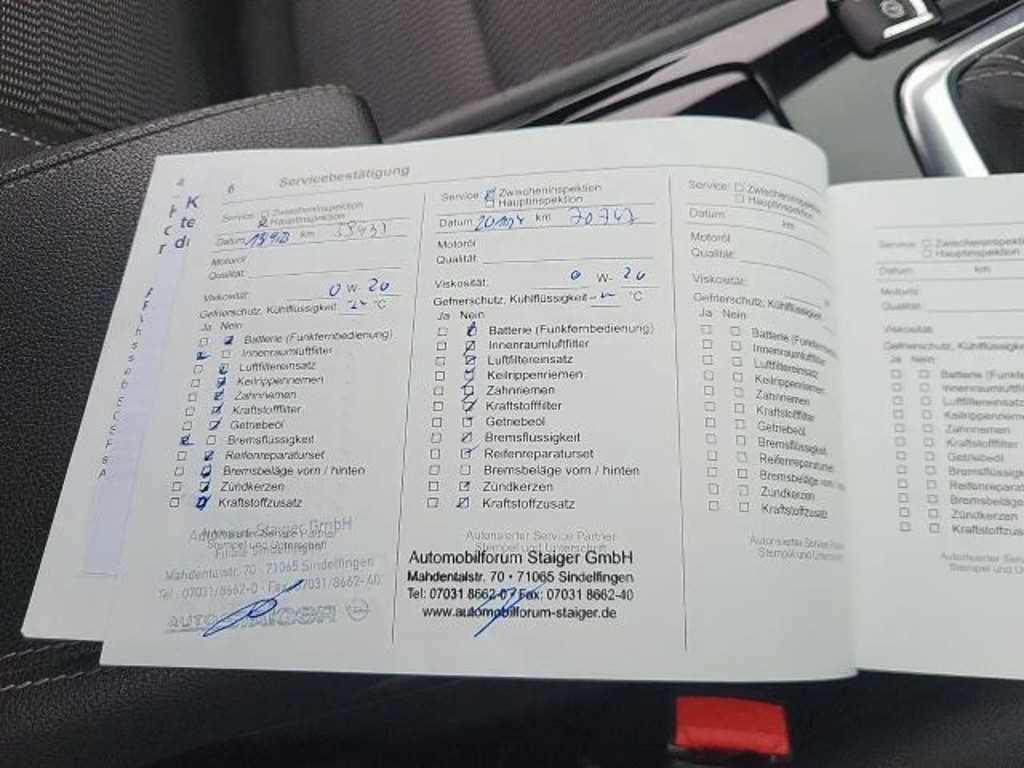 4
K
te
di
6 Servicebestätigung
Service: Zwischeninspektion
Hauptinspektion
Datum km
Motoröl
Qualität:
Viskosität: 0 W- 20
Gefrierschutz, Kühlflüssigkeit °C
Ja Nein
Batterie (Funkfernbedienung)
Innenraumluftfilter
Luftfiltereinsatz
Keilrippenriemen
Zahnriemen
Kraftstofffilter
Getriebeöl
Bremsflüssigkeit
Reifenreparaturset
Bremsbeläge vorn / hinten
Zündkerzen
Kraftstoffzusatz
Staiger GmbH
Mahdentalstr. 70 · 71065 Sindelfingen
Tel. 07031/8662-0 · Fax 07031/8662-40
AUTO STAIGER
Service: Zwischeninspektion
Hauptinspektion
Datum km 70747
Motoröl
Qualität:
Viskosität: 0 W- 20
Gefrierschutz, Kühlflüssigkeit °C
Ja Nein
Batterie (Funkfernbedienung)
Innenraumluftfilter
Luftfiltereinsatz
Keilrippenriemen
Zahnriemen
Kraftstofffilter
Getriebeöl
Bremsflüssigkeit
Reifenreparaturset
Bremsbeläge vorn / hinten
Zündkerzen
Kraftstoffzusatz
Autorisierter Service Partner
Stempel und Unterschrift
Automobilforum Staiger GmbH
Mahdentalstr. 70 · 71065 Sindelfingen
Tel: 07031 8662-0 Fax: 07031 8662-40
www.automobilforum-staiger.de
Service: Zwischeninspektion
Hauptinspektion
Datum km
Motoröl
Qualität:
Viskosität:
Gefrierschutz, Kühlflüssigkeit
Ja Nein
Batterie (Funkfern
Innenraumluftfilter
Luftfiltereinsatz
Keilrippenriemen
Zahnriemen
Kraftstofffilter
Getriebeöl
Bremsflüssigkeit
Reifenreparaturset
Bremsbeläge vorn
Zündkerzen
Kraftstoffzusatz
Autorisierter Service
Stempel und Unterschr
Service: Zwischeninspektion
Hauptinspektion
Datum: km
Motoröl
Qualität:
Viskosität:
Gefrierschutz, Kühlflüssigkeit
Ja Nein
Batterie (Funkf
Innenraumluftfilter
Luftfiltereinsatz
Keilrippenriem
Zahnriemen
Kraftstofffilter
Getriebeöl
Bremsflüssigk
Reifenreparat
Bremsbeläge
Zündkerzen
Kraftstoffzus
Autorisierter Serv
Stempel und U